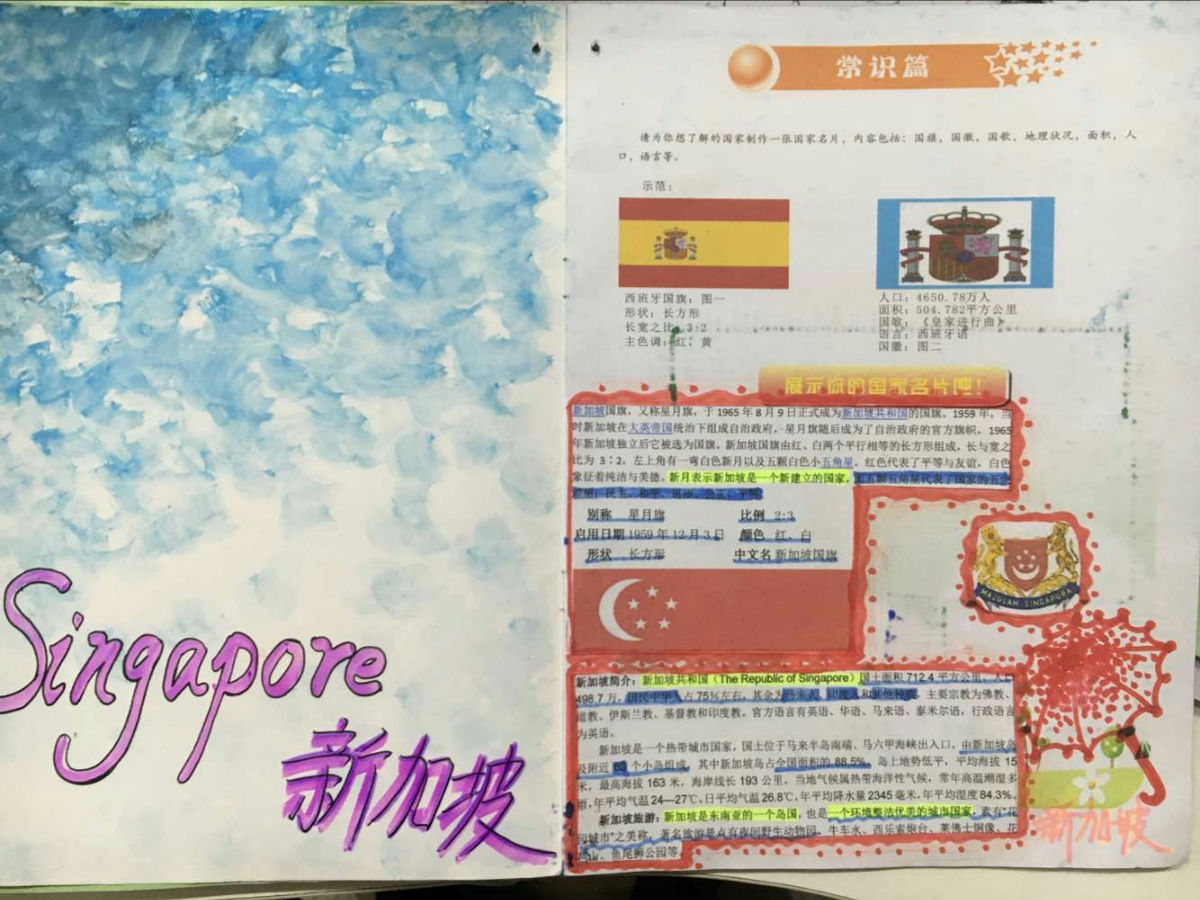 Singapore
新加坡
常识篇
请为你想了解的国家制作一张国家名片，内容包括：国旗，国徽，国歌，地理状况，面积，人
口，语言等。
示范：
西班牙国旗：图一
形状：长方形
长宽之比：3:2
主色调：红，黄
人口：4650.78万人
面积：504.782平方公里
国歌：《皇家进行曲》
语言：西班牙语
国徽：图二
展示你的国家名片吧！
新加坡国旗，又称星月旗，于 1965 年 8 月 9 日正式成为新加坡共和国的国旗。1959 年，当
时新加坡在大英帝国统治下组成自治政府，星月旗随后成为了自治政府的官方旗帜，1965
年新加坡独立后它被选为国旗。新加坡国旗由红、白两个平行相等的长方形组成，长与宽之
比为 3∶2，左上角有一弯白色新月以及五颗白色小五角星。红色代表了平等与友谊，白色
象征着纯洁与美德。新月表示新加坡是一个新建立的国家，而五颗五角星代表了国家的五
民主、和平、进步、公正、平等
别称 星月旗 比例 2:3
启用日期 1959 年 12 月 3 日 颜色 红、白
形状 长方形 中文名 新加坡国旗
MAJULAH SINGAPURA
新加坡简介：新加坡共和国（The Republic of Singapore）国土面积 712.4 平方公里，人口
498.7 万，国民中华人占 75%左右，其余为马来人、印度人和其他种族。主要宗教为佛教、
道教、伊斯兰教、基督教和印度教。官方语言有英语、华语、马来语、泰米尔语，行政语言
为英语。
新加坡是一个热带城市国家，国土位于马来半岛南端、马六甲海峡出入口，由新加坡岛
及附近 63 个小岛组成，其中新加坡岛占全国面积的 88.5%。岛上地势低平，平均海拔 15
米，最高海拔 163 米，海岸线长 193 公里。当地气候属热带海洋性气候，常年高温潮湿多
雨，年平均气温 24—27℃，日平均气温 26.8℃，年平均降水量 2345 毫米，年平均湿度 84.3%。
新加坡旅游：新加坡是东南亚的一个岛国，也是一个环境整洁优美的城市国家，素有“花
园城市”之美称，著名旅游景点有夜间野生动物园、牛车水、西乐索炮台、莱佛士铜像、花
山、鱼尾狮公园等。
新加坡